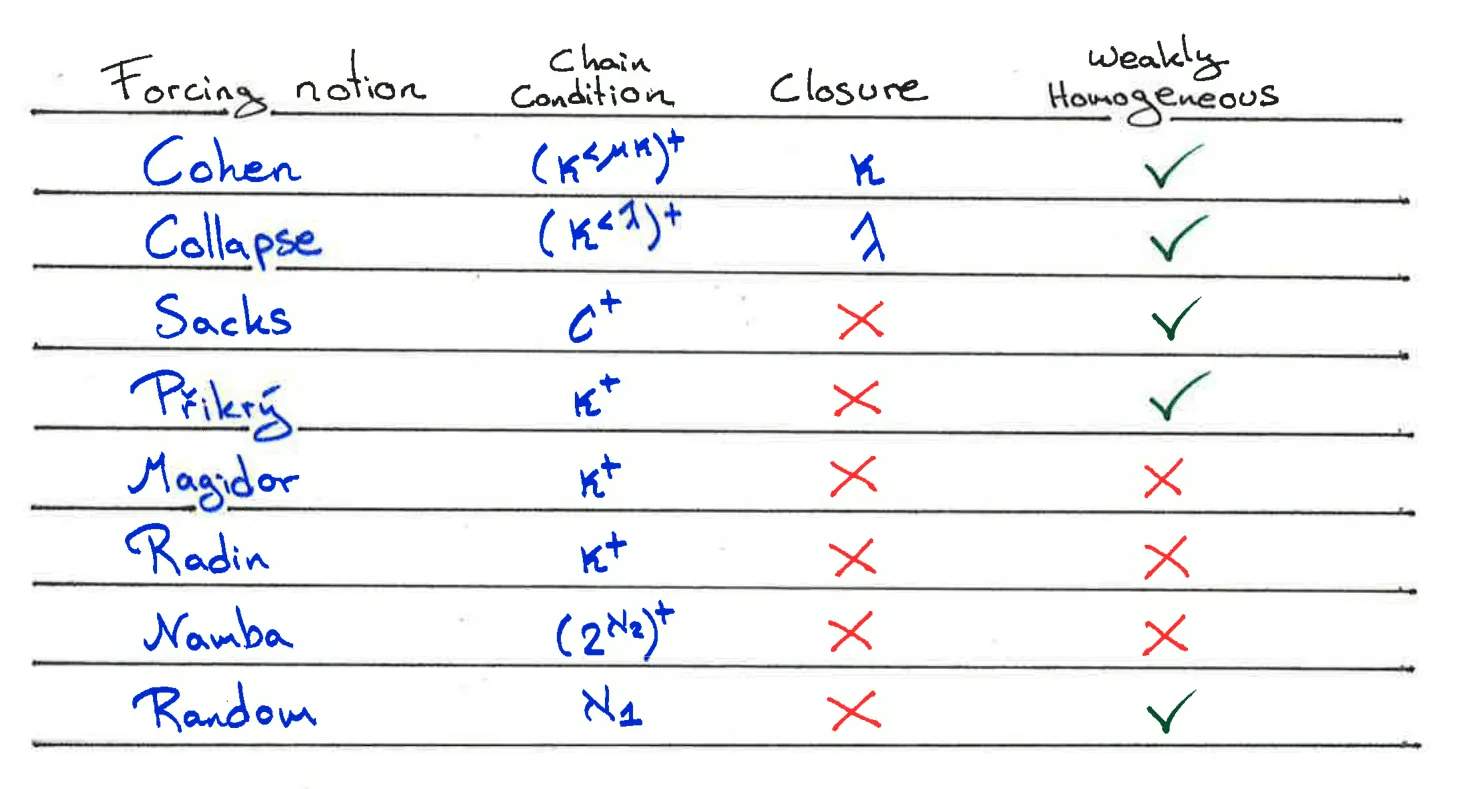 Forcing notion Chain Condition Closure Weakly Homogeneous
Cohen (κ^{<μκ})^+ κ ✓
Collapse (κ^{<λ})^+ λ ✓
Sacks c^+ ✗ ✓
Přikrý κ^+ ✗ ✓
Magidor κ^+ ✗ ✗
Radin κ^+ ✗ ✗
Namba (2^{ℵ_2})^+ ✗ ✗
Random ℵ_1 ✗ ✓